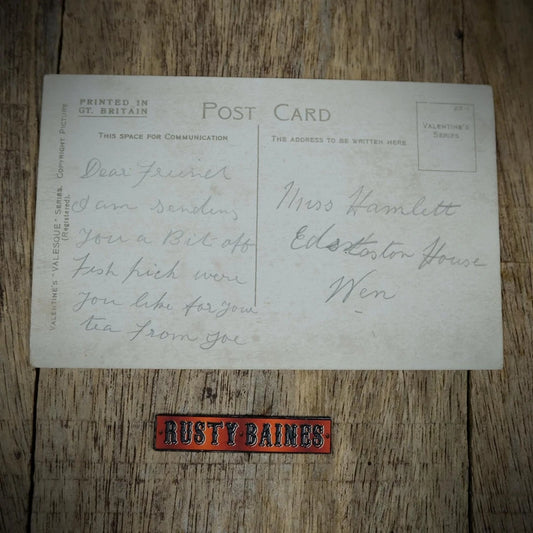 PRINTED IN
GT. BRITAIN
POST CARD
THIS SPACE FOR COMMUNICATION
THE ADDRESS TO BE WRITTEN HERE
VALENTINE'S
SERIES
VALENTINE'S "VALESQUE" SERIES. COPYRIGHT PICTURE
(Registered).
Dear Freind
I am sending
You a Bit off
Fish pick were
You like for your
tea From Joe
Miss Hamlett
Edstaston House
Wen
RUSTY·BAINES